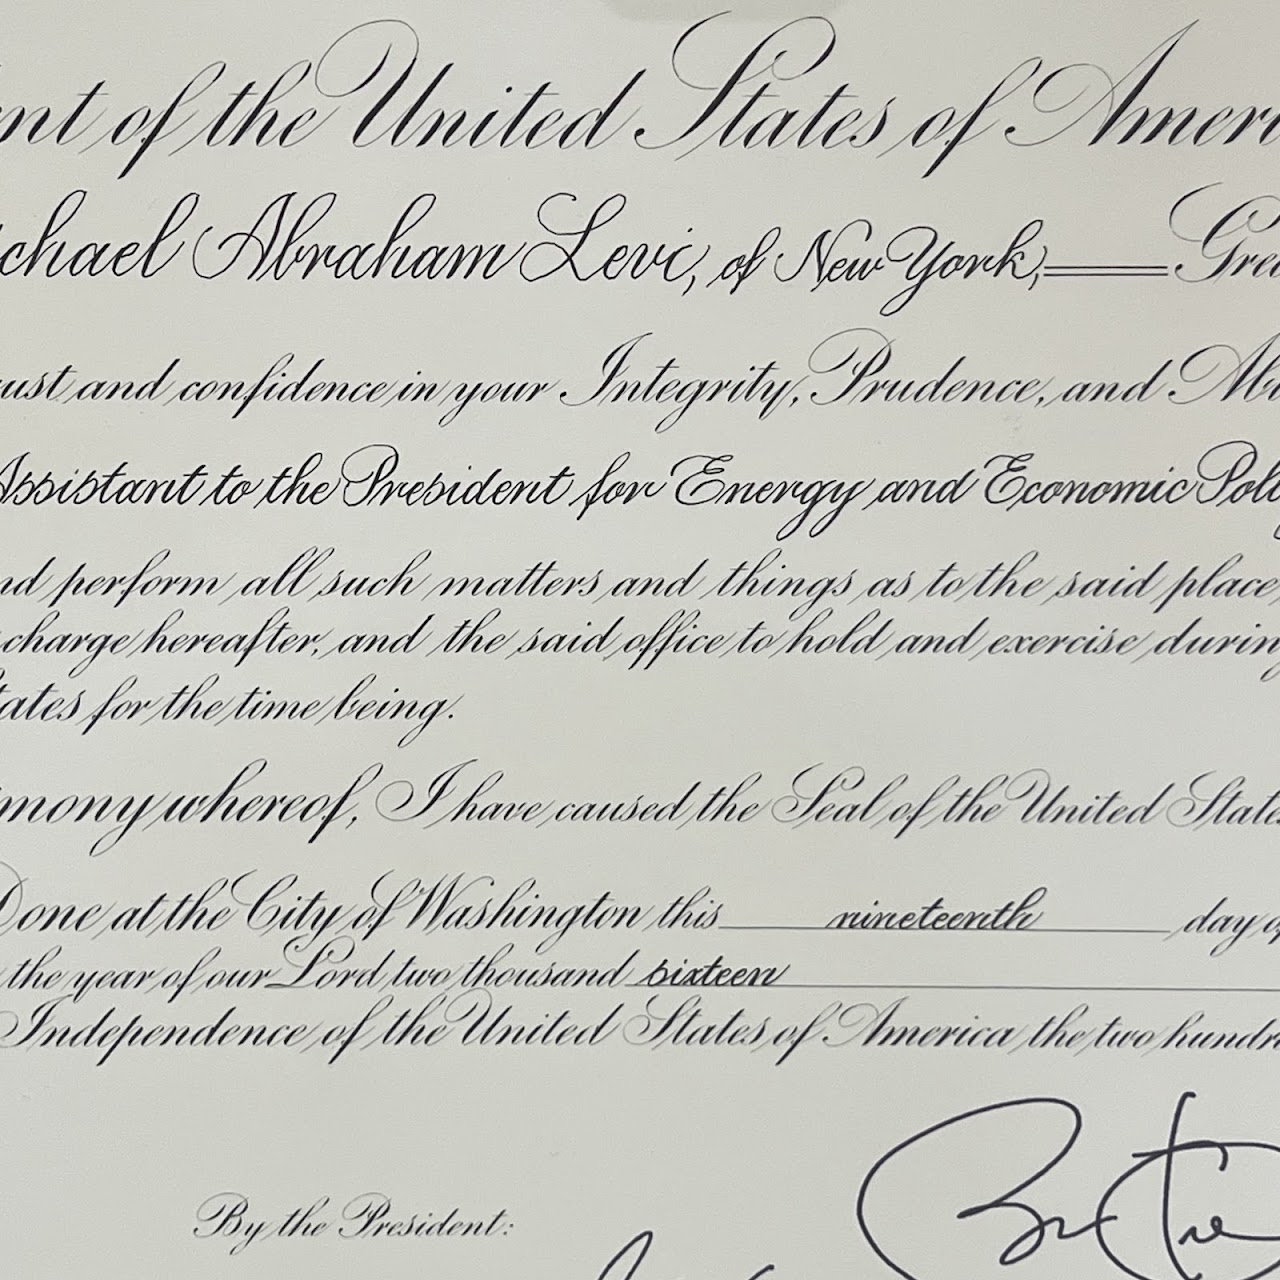 nt of the United States of Ameri
chael Abraham Levi, of New York, Gree
ust and confidence in your Integrity, Prudence, and Abi
Assistant to the President for Energy and Economic Poli
nd perform all such matters and things as to the said place
charge hereafter, and the said office to hold and exercise during
tates for the time being.
mony whereof, I have caused the Seal of the United States
Done at the City of Washington this nineteenth day of
the year of our Lord two thousand sixteen
Independence of the United States of America the two hundr
By the President: